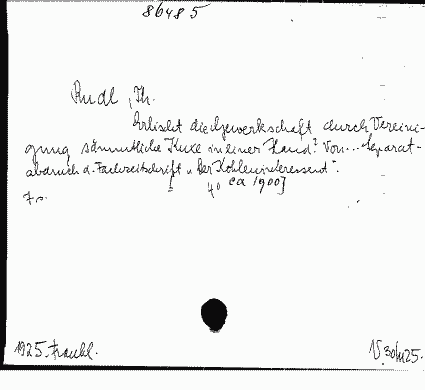 86485
Rudl, Th.
Erlischt die Gewerkschaft durch Vereini-
gung sämmtliche Kuxe in einer Hand? Von... Separat-
abdruck d. Fachzeitschrift „Der Kohleninteressent".
4° ca 1900]
7 S.
1925. Frankl.
30/III 25.